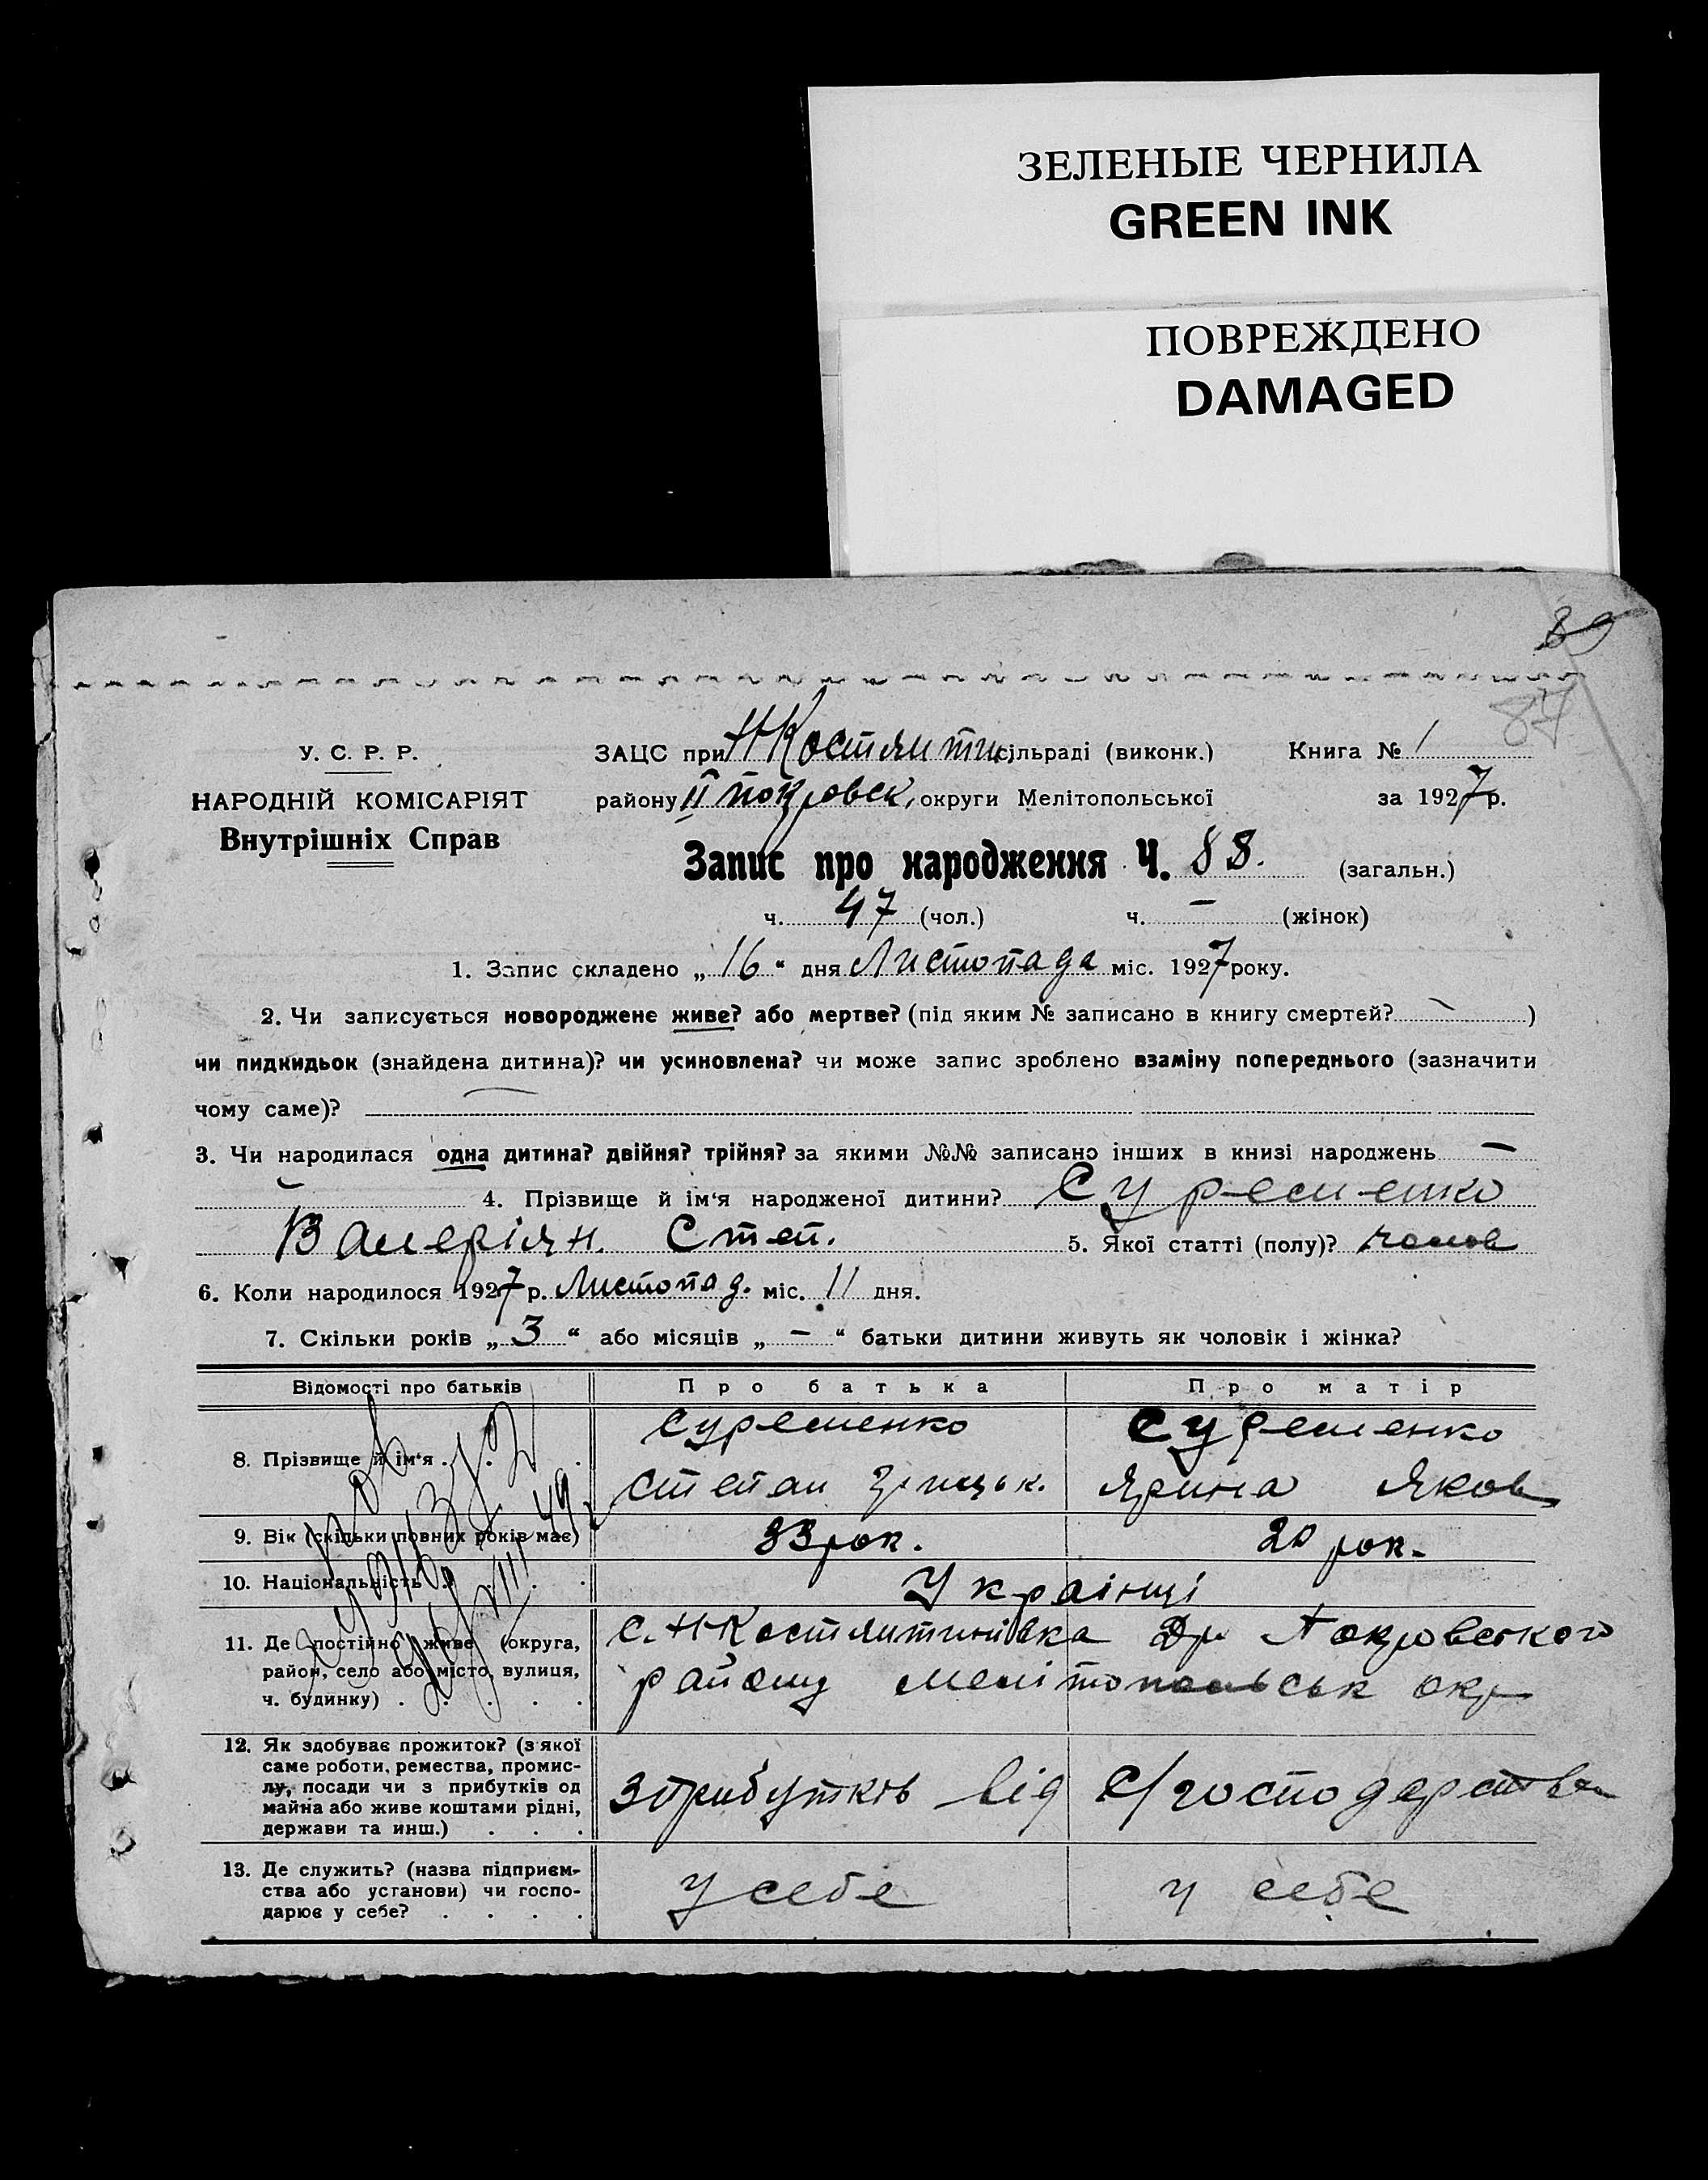 ЗЕЛЕНЫЕ ЧЕРНИЛА
GREEN INK
ПОВРЕЖДЕНО
DAMAGED
87
У. С. Р. Р.
НАРОДНІЙ КОМІСАРІЯТ
Внутрішніх Справ
ЗАЦС при НКостянтин, сільраді (виконк.) Книга № 1
району ІІ покровск, округи Мелітопольської за 1927 р.
Запис про народження Ч. 88. (загальн.)
ч. 47 (чол.) ч. — (жінок)
1. Запис складено „16“ дня Листопада міс. 1927 року.
2. Чи записується новороджене живе? або мертве? (під яким № записано в книгу смертей? — )
чи пидкидьок (знайдена дитина)? чи усиновлена? чи може запис зроблено взаміну попереднього (зазначити
чому саме)? —
3. Чи народилася одна дитина? двійня? трійня? за якими №№ записано інших в книзі народжень —
4. Прізвище й ім‘я народженої дитини? Суременко
Валеріян. Степ. 5. Якої статті (полу)? чолов
6. Коли народилося 1927 р. Листопад. міс. 11 дня.
7. Скільки років „3“ або місяців „—“ батьки дитини живуть як чоловік і жінка?
Відомості про батьків Про батька Про матір
8. Прізвище й ім‘я . Суременко Суременко
Степан Грицьк. Ярина Яков
9. Вік (скільки повних років має) 33 рок. 20 рок.
10. Національність Українці
11. Де постійно живе (округа, с. НКостянтинівка Покровского
район, село або місто, вулиця, району Мелітопольськ окр
ч. будинку)
12. Як здобуває прожиток? (з якої
саме роботи, ремества, промис-
лу, посади чи з прибутків од
майна або живе коштами рідні,
держави та инш.) зприбутків від с/господарства
13. Де служить? (назва підприєм-
ства або установи) чи госпо-
дарює у себе? у себе у себе